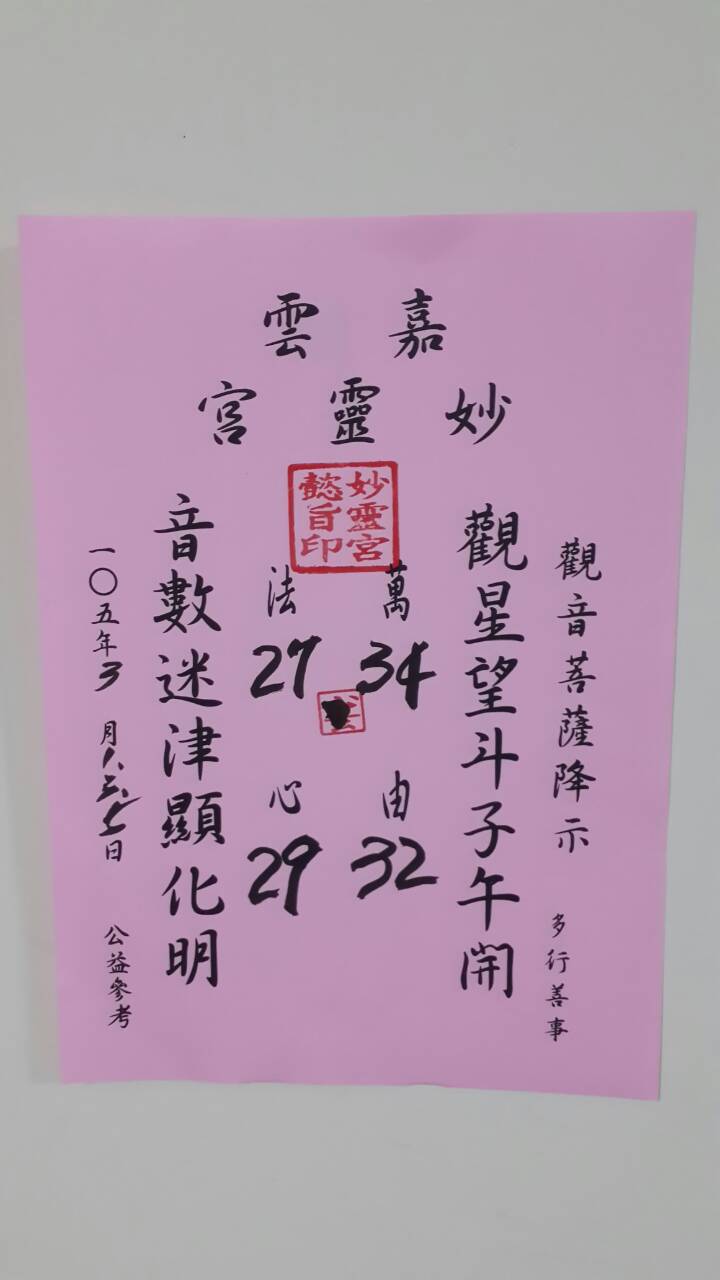 嘉雲
妙靈宮
妙靈宮
懿旨印
觀音菩薩降示 多行善事
觀星望斗子午開
萬 法
34 27
由 心
32 29
音數迷津顯化明
一〇五年3月 日 公益參考